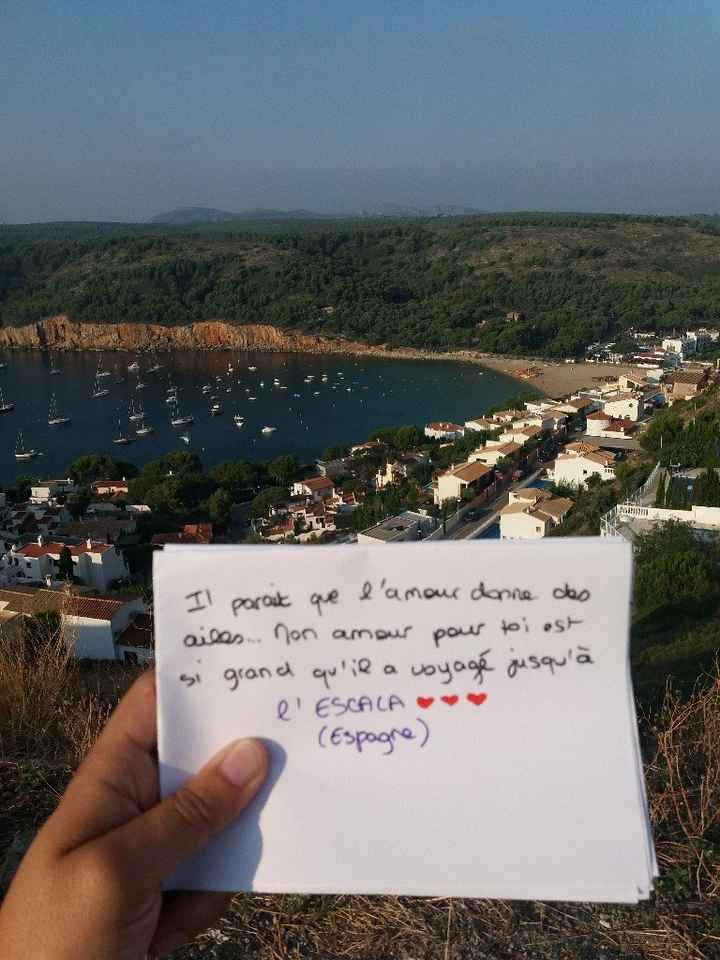 Il parait que l'amour donne des
ailes... Mon amour pour toi est
si grand qu'il a voyagé jusqu'à
l'ESCALA ♥♥♥
(Espagne)